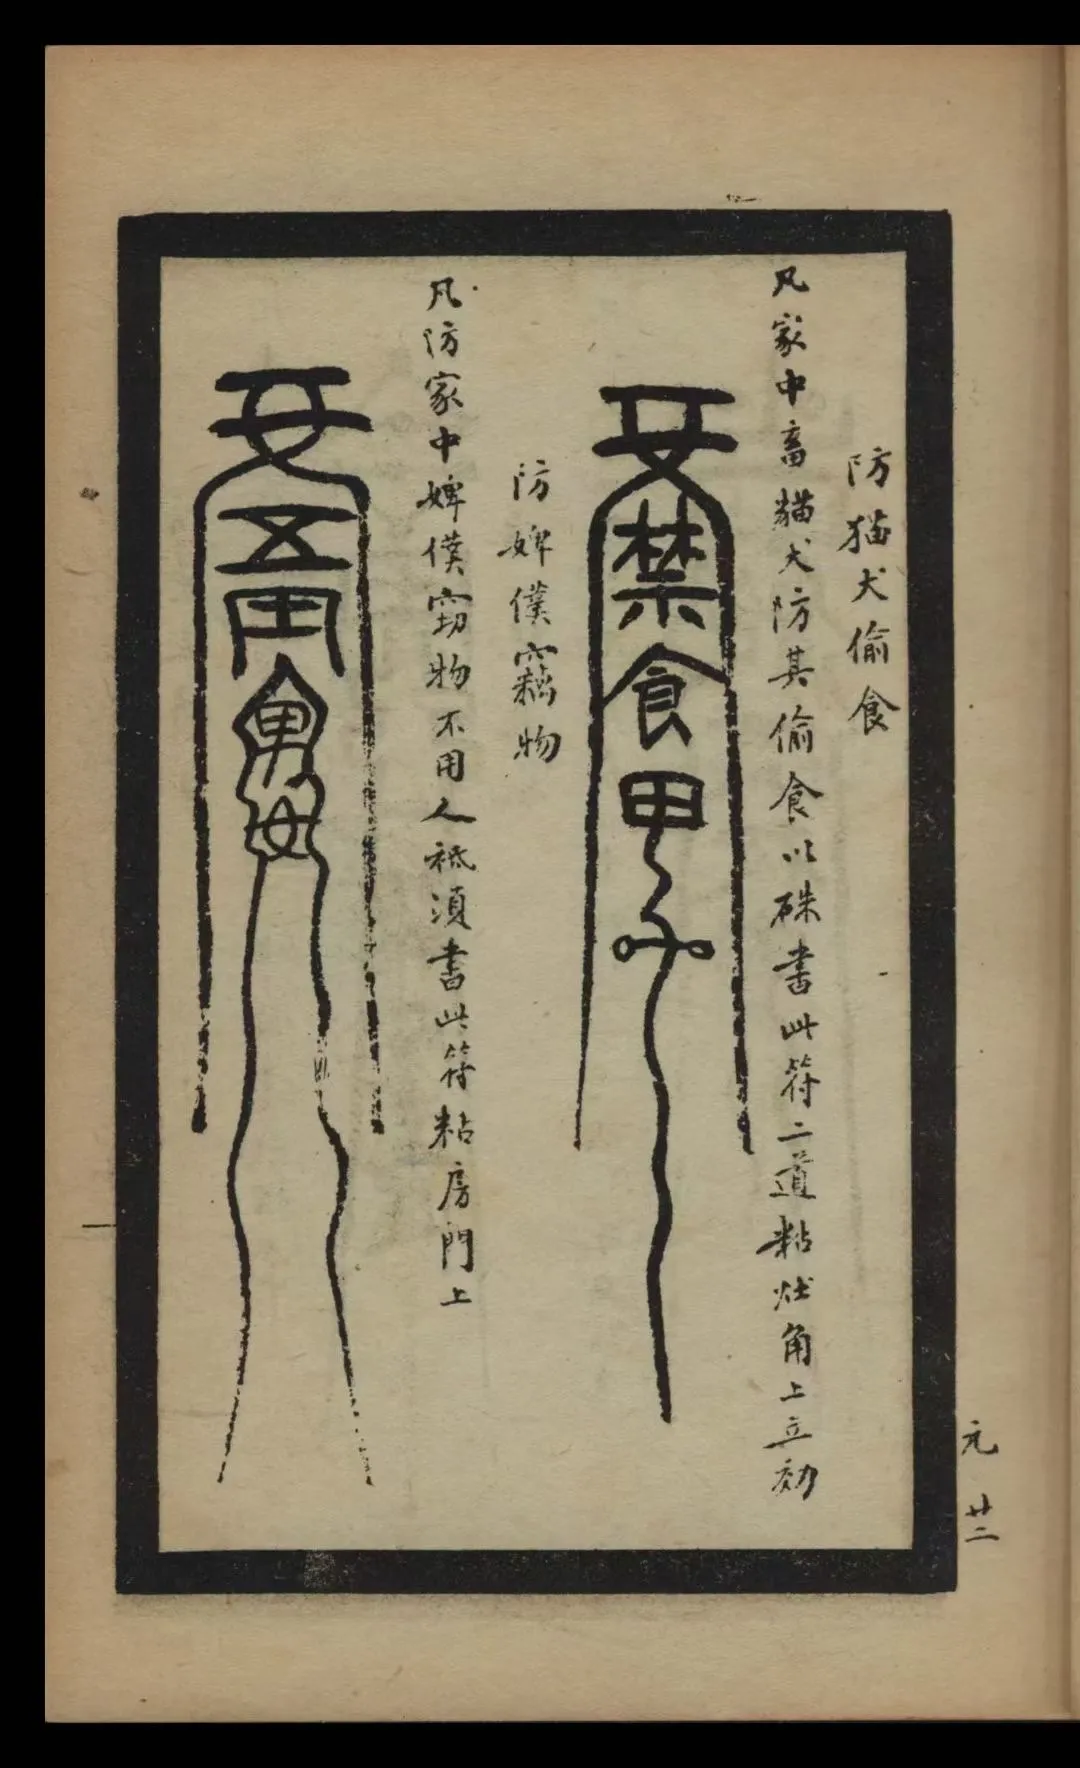 防猫犬偷食
凡家中畜貓犬防其偷食以硃書此符二道粘灶角上立効
禁食甲子
防婢僕竊物
凡防家中婢僕窃物不用人祗湏書此符粘房門上
元 廿二